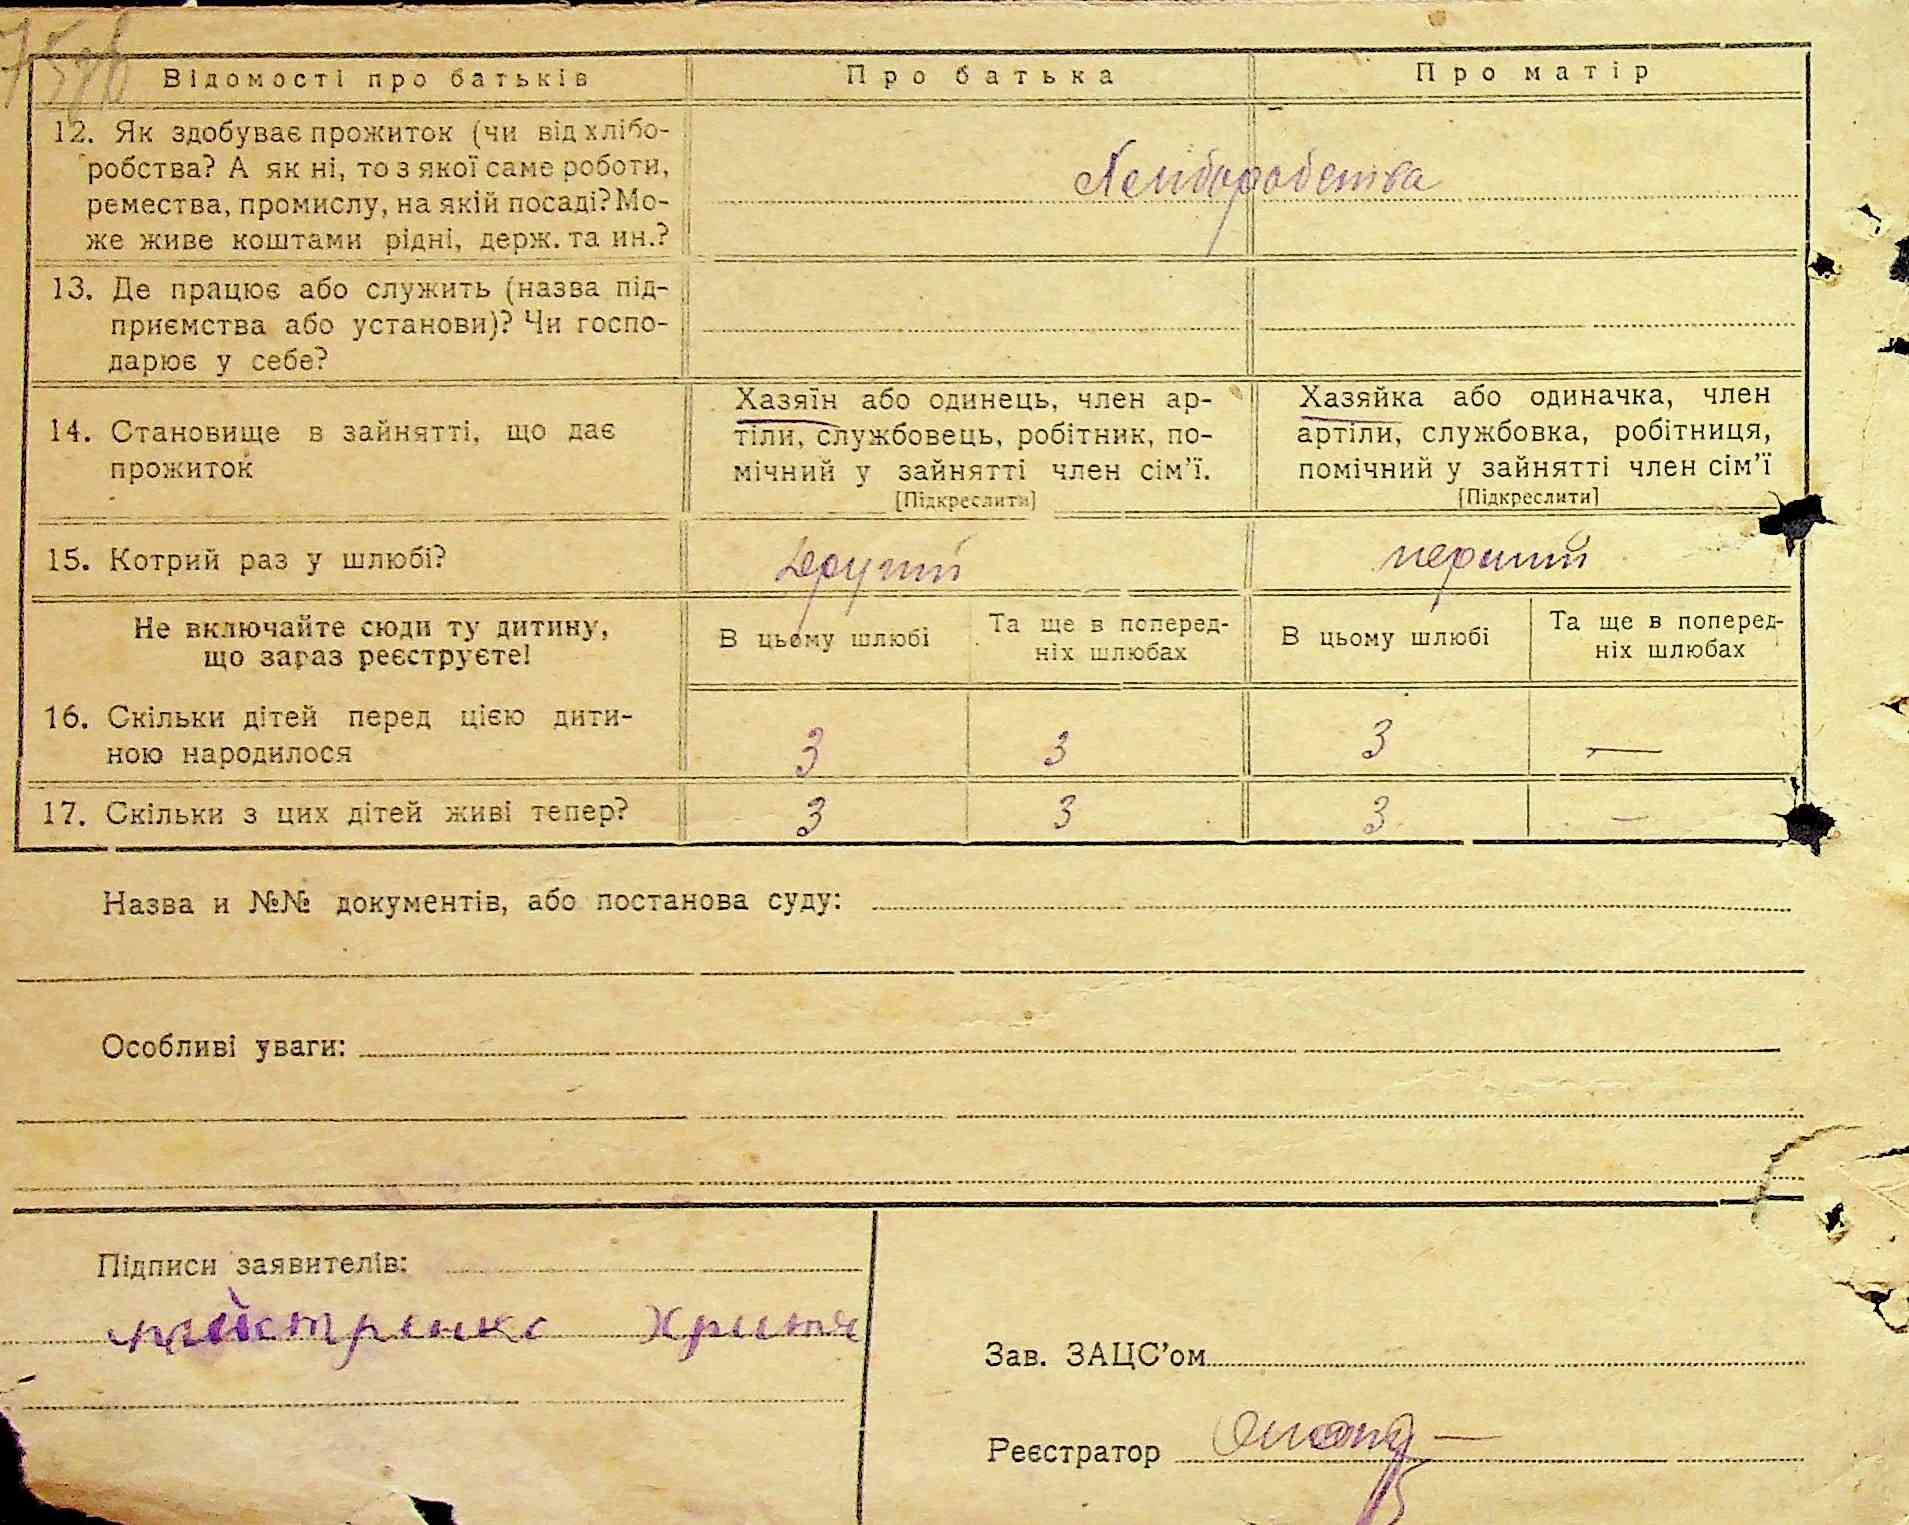 Відомості про батьків Про батька Про матір
12. Як здобуває прожиток (чи від хлібо-
робства? А як ні, то з якої саме роботи,
ремества, промислу, на якій посаді? Мо-
же живе коштами рідні, держ. та ин.?
Хліборобства
13. Де працює або служить (назва під-
приємства або установи)? Чи госпо-
дарює у себе?
14. Становище в зайнятті, що дає
прожиток
Хазяїн або одинець, член ар-
тіли, службовець, робітник, по-
мічний у зайнятті член сім’ї.
[Підкреслити]
Хазяйка або одиначка, член
артіли, службовка, робітниця,
помічний у зайнятті член сім’ї
[Підкреслити]
15. Котрий раз у шлюбі? другий перший
Не включайте сюди ту дитину,
що зараз реєструєте!
В цьому шлюбі
Та ще в поперед-
ніх шлюбах
В цьому шлюбі
Та ще в поперед-
ніх шлюбах
16. Скільки дітей перед цією дити-
ною народилося
3 3 3 —
17. Скільки з цих дітей живі тепер? 3 3 3 —
Назва и №№ документів, або постанова суду:
Особливі уваги:
Підписи заявителів:
Зав. ЗАЦС’ом
Реєстратор